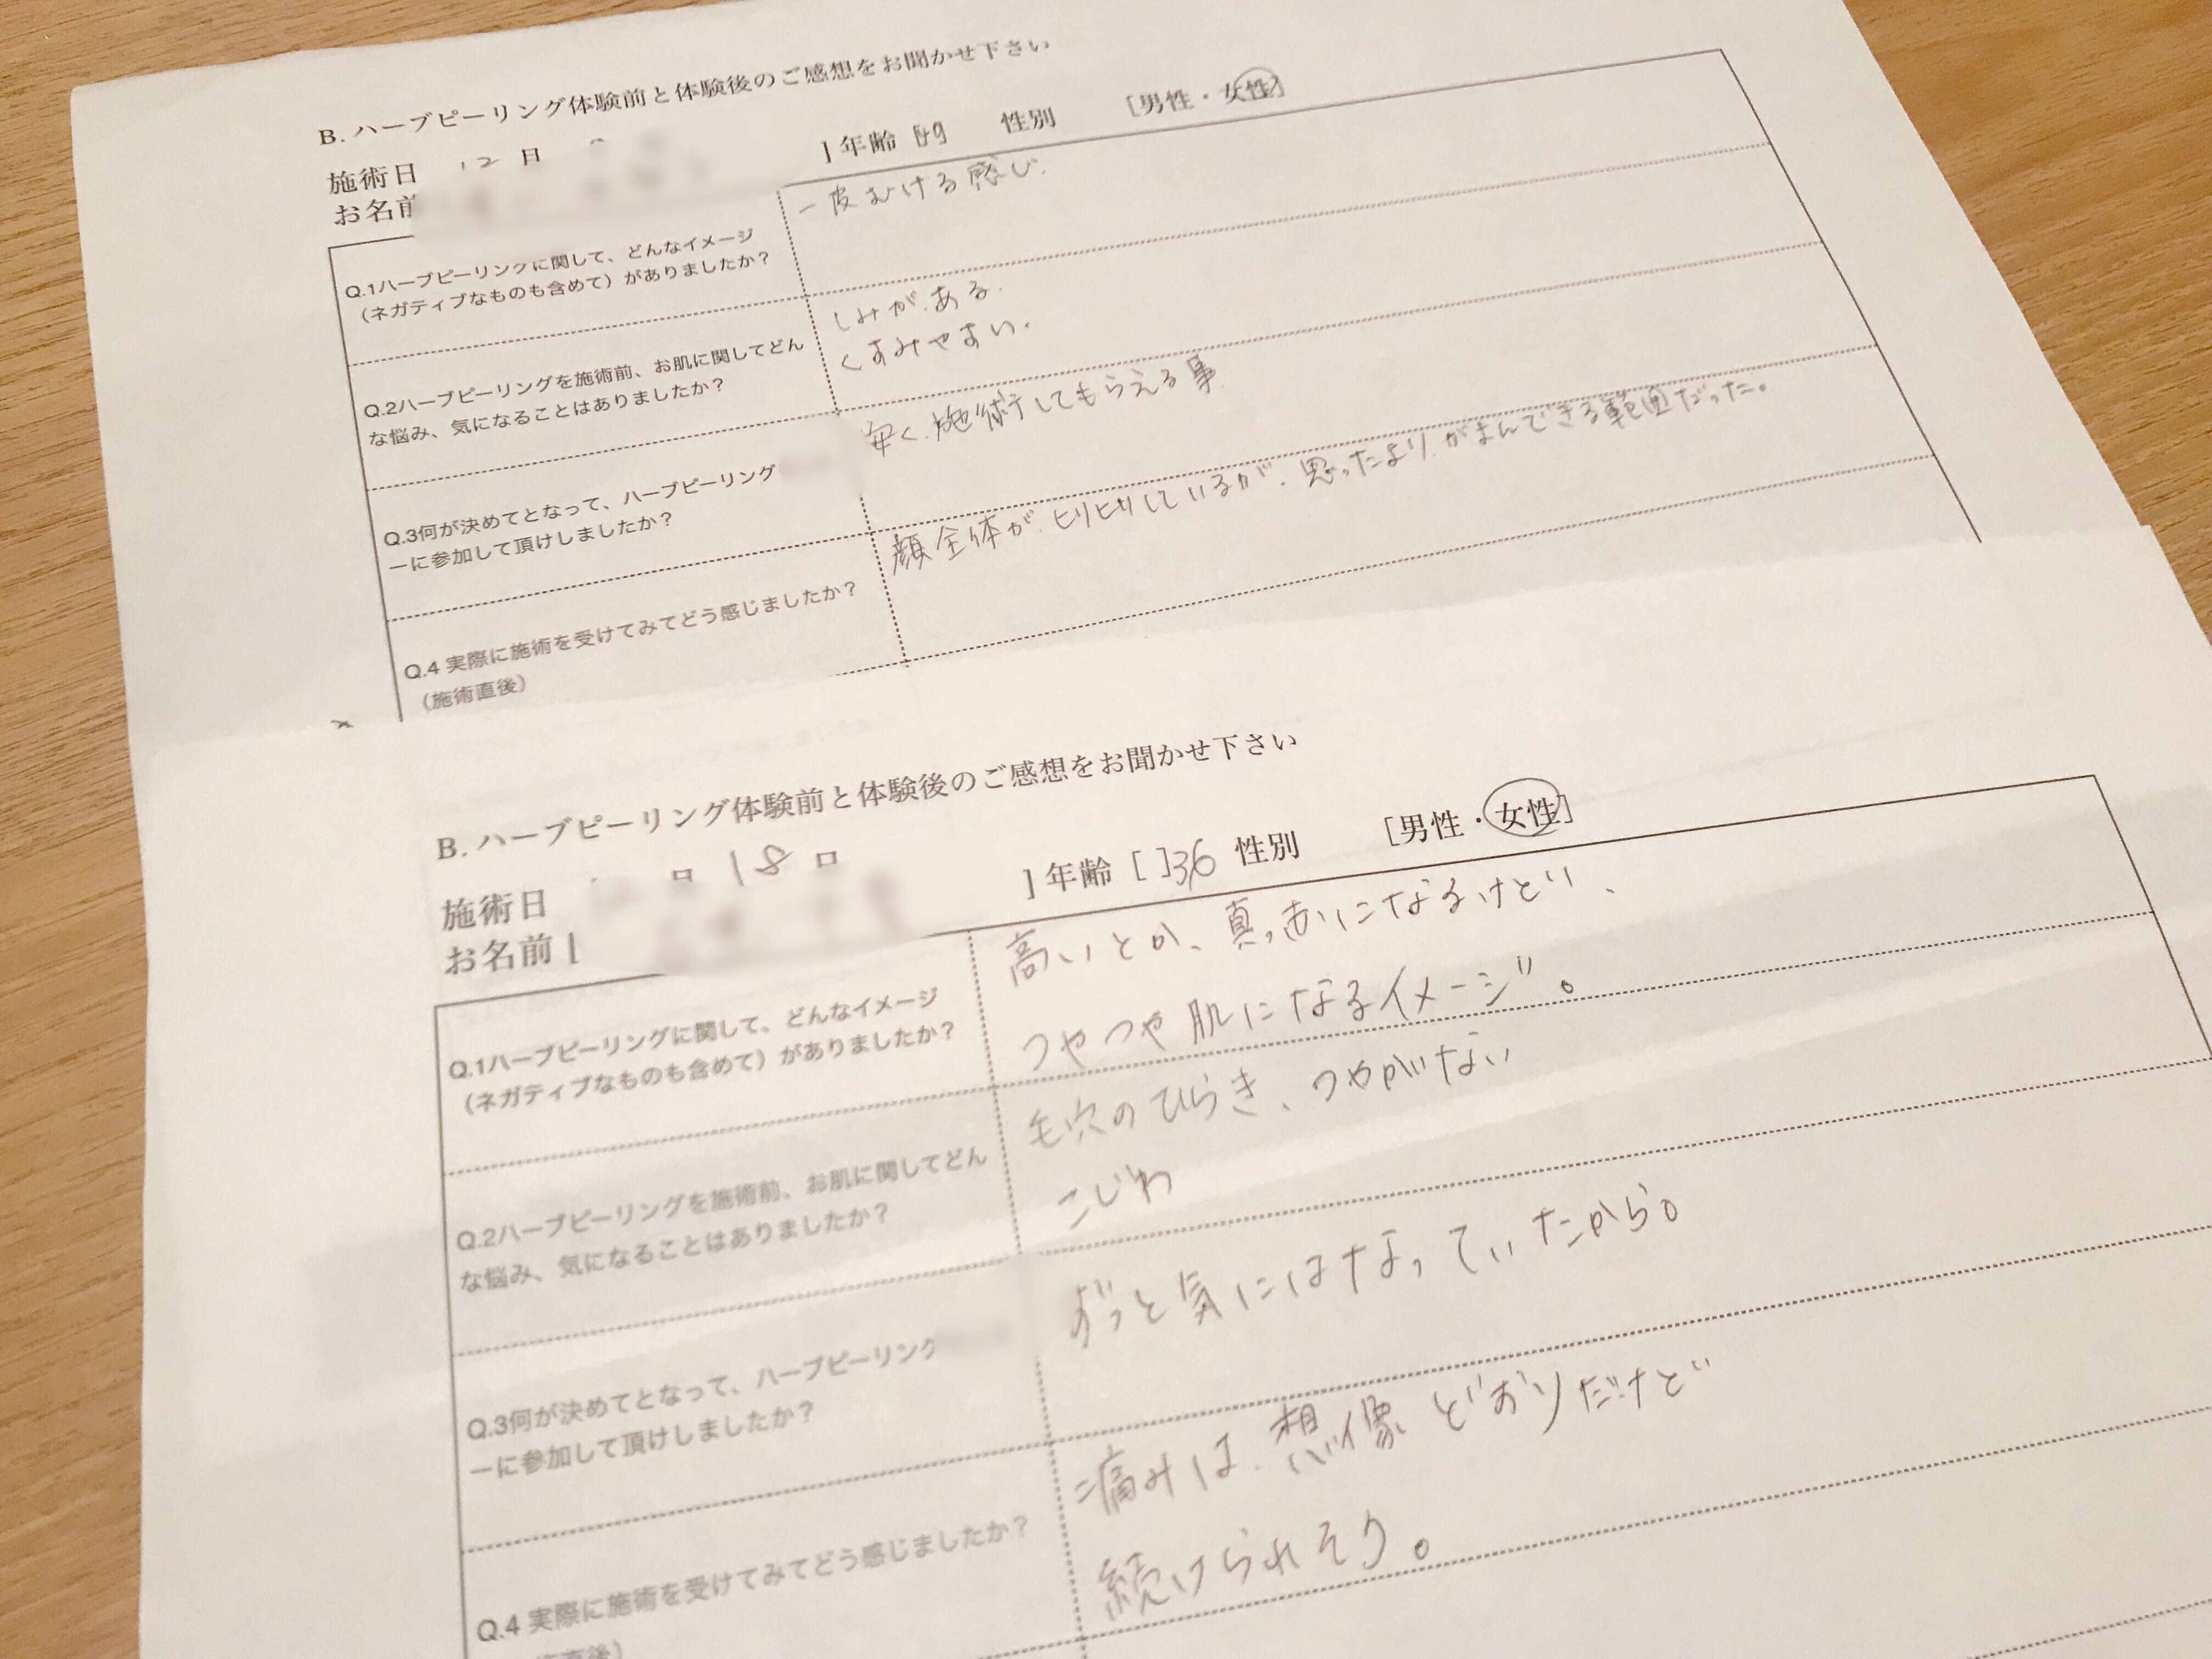 B. ハーブピーリング体験前と体験後のご感想をお聞かせ下さい
施術日 12 月
お名前 ] 年齢 49 性別 [男性・女性]
Q.1ハーブピーリングに関して、どんなイメージ
(ネガティブなものも含めて)がありましたか?
一皮むける感じ.
Q.2ハーブピーリングを施術前、お肌に関してどん
な悩み、気になることはありましたか?
しみが.ある.
くすみやすい.
Q.3何が決めてとなって、ハーブピーリング
ーに参加して頂けしましたか?
安く.施術してもらえる事
Q.4 実際に施術を受けてみてどう感じましたか?
(施術直後)
顔全体が.ヒリヒリしているが.思ったよりがまんできる範囲だった。
B. ハーブピーリング体験前と体験後のご感想をお聞かせ下さい
施術日 月 18 日
お名前 [ ] 年齢 [ ]36 性別 [男性・女性]
Q.1ハーブピーリングに関して、どんなイメージ
(ネガティブなものも含めて)がありましたか?
高いとか、真っ赤になるけど、
つやつや肌になるイメージ。
Q.2ハーブピーリングを施術前、お肌に関してどん
な悩み、気になることはありましたか?
毛穴のひらき、つやがない
こじわ
Q.3何が決めてとなって、ハーブピーリング
ーに参加して頂けしましたか?
ずっと気にはなっていたから。
Q.4 実際に施術を受けてみてどう感じましたか?
直後)
痛みは.想像どおりだけど
続けられそう。